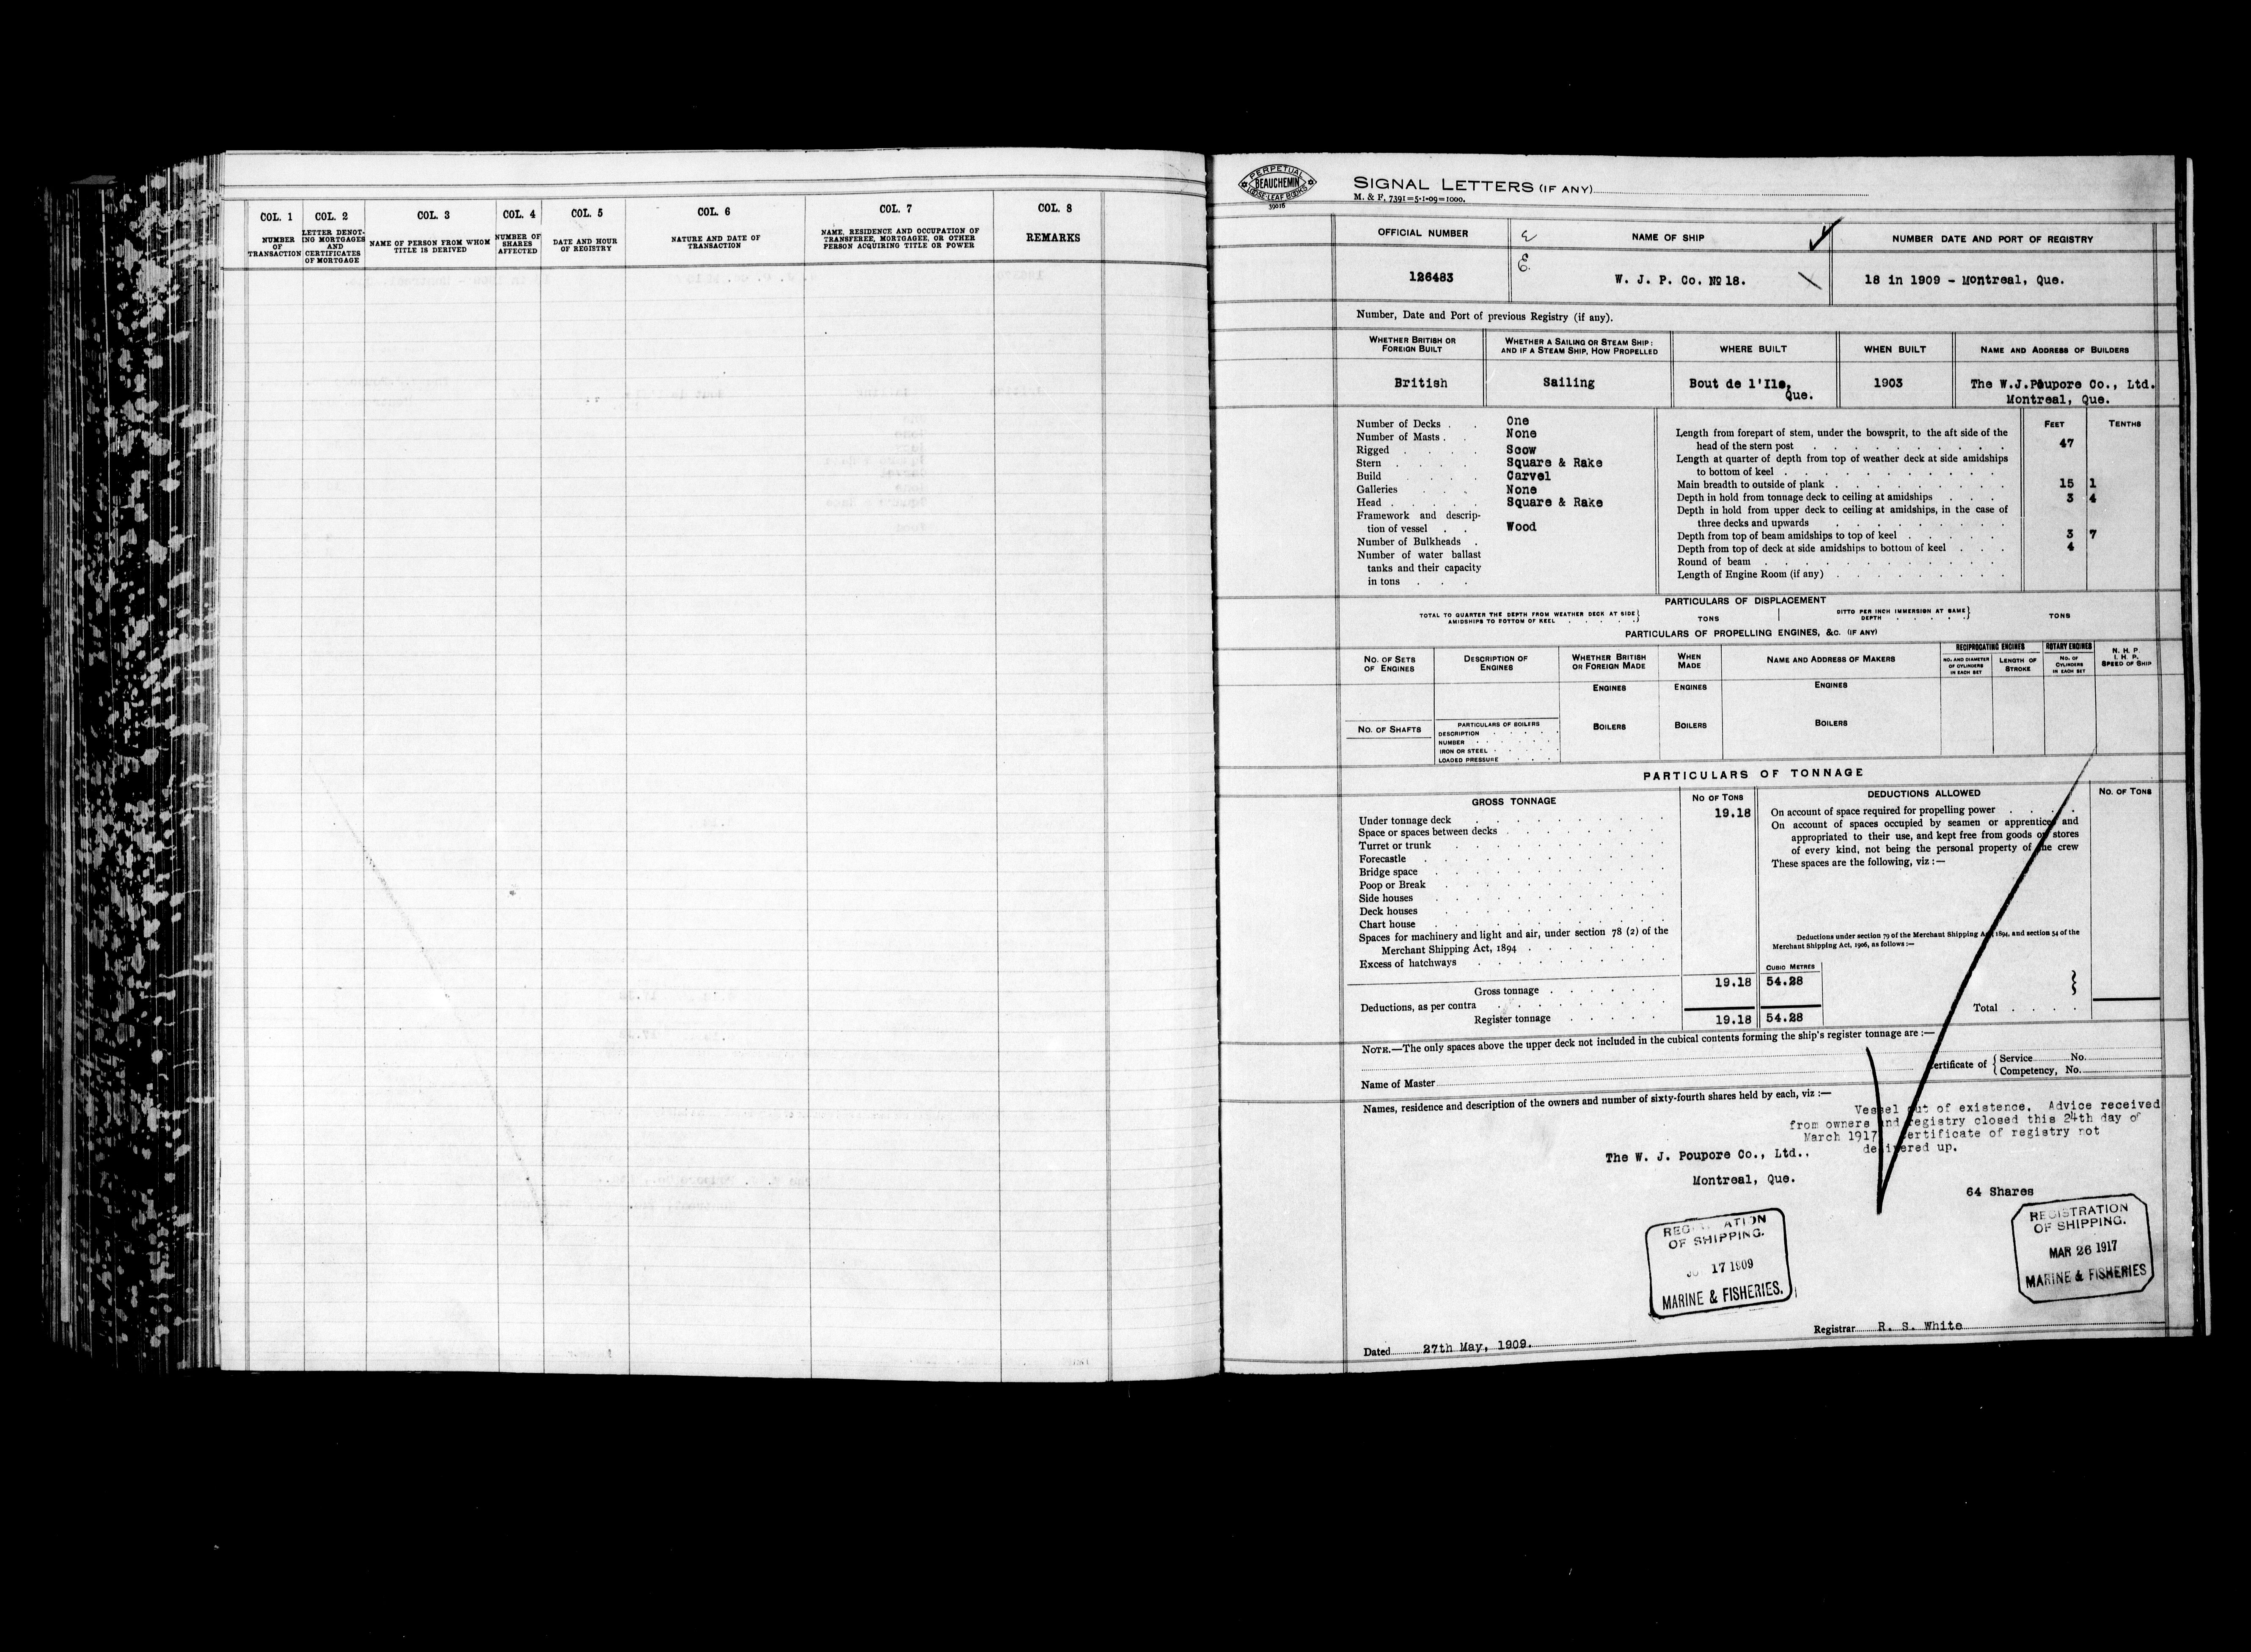 COL. 1
COL. 2
COL. 3
COL. 4
COL. 5
COL. 6
COL. 7
COL. 8
NUMBER OF TRANSACTION
LETTER DENOTING MORTGAGES AND CERTIFICATES OF MORTGAGE
NAME OF PERSON FROM WHOM TITLE IS DERIVED
NUMBER OF SHARES AFFECTED
DATE AND HOUR OF REGISTRY
NATURE AND DATE OF TRANSACTION
NAME, RESIDENCE AND OCCUPATION OF TRANSFEREE, MORTGAGEE, OR OTHER PERSON ACQUIRING TITLE OR POWER
REMARKS
PERPETUAL
BEAUCHEMIN
LOOSE-LEAF BOOKS
39016
SIGNAL LETTERS (IF ANY)
M. & F. 7391=5-1-09=1000.
OFFICIAL NUMBER
NAME OF SHIP
NUMBER DATE AND PORT OF REGISTRY
126483
W. J. P. Co. No 18.
18 in 1909 - Montreal, Que.
Number, Date and Port of previous Registry (if any).
WHETHER BRITISH OR FOREIGN BUILT
WHETHER A SAILING OR STEAM SHIP: AND IF A STEAM SHIP, HOW PROPELLED
WHERE BUILT
WHEN BUILT
NAME AND ADDRESS OF BUILDERS
British
Sailing
Bout de l'Ile,
Que.
1903
The W.J.Poupore Co., Ltd.
Montreal, Que.
Number of Decks . . One
Number of Masts . . None
Rigged . . . . Scow
Stern . . . . Square & Rake
Build . . . . Carvel
Galleries . . . None
Head . . . . . Square & Rake
Framework and descrip-
tion of vessel . . Wood
Number of Bulkheads .
Number of water ballast
tanks and their capacity
in tons . . .
FEET TENTHS
Length from forepart of stem, under the bowsprit, to the aft side of the
head of the stern post 47
Length at quarter of depth from top of weather deck at side amidships
to bottom of keel
Main breadth to outside of plank 15 1
Depth in hold from tonnage deck to ceiling at amidships 3 4
Depth in hold from upper deck to ceiling at amidships, in the case of
three decks and upwards
Depth from top of beam amidships to top of keel 3 7
Depth from top of deck at side amidships to bottom of keel 4
Round of beam
Length of Engine Room (if any)
PARTICULARS OF DISPLACEMENT
TOTAL TO QUARTER THE DEPTH FROM WEATHER DECK AT SIDE
AMIDSHIPS TO BOTTOM OF KEEL
TONS
DITTO PER INCH IMMERSION AT SAME
DEPTH
TONS
PARTICULARS OF PROPELLING ENGINES, &C. (IF ANY)
NO. OF SETS OF ENGINES
DESCRIPTION OF ENGINES
WHETHER BRITISH OR FOREIGN MADE
WHEN MADE
NAME AND ADDRESS OF MAKERS
RECIPROCATING ENGINES
NO. AND DIAMETER OF CYLINDERS IN EACH SET
LENGTH OF STROKE
ROTARY ENGINES
NO. OF CYLINDERS IN EACH SET
N. H. P.
I. H. P.
SPEED OF SHIP
ENGINES
ENGINES
ENGINES
NO. OF SHAFTS
PARTICULARS OF BOILERS
DESCRIPTION
NUMBER
IRON OR STEEL
LOADED PRESSURE
BOILERS
BOILERS
BOILERS
PARTICULARS OF TONNAGE
GROSS TONNAGE
NO OF TONS
DEDUCTIONS ALLOWED
NO. OF TONS
Under tonnage deck 19.18
Space or spaces between decks
Turret or trunk
Forecastle
Bridge space
Poop or Break
Side houses
Deck houses
Chart house
Spaces for machinery and light and air, under section 78 (2) of the
Merchant Shipping Act, 1894
Excess of hatchways
On account of space required for propelling power
On account of spaces occupied by seamen or apprentices and
appropriated to their use, and kept free from goods or stores
of every kind, not being the personal property of the crew
These spaces are the following, viz :—
Deductions under section 79 of the Merchant Shipping Act, 1894, and section 54 of the
Merchant Shipping Act, 1906, as follows :—
CUBIC METRES
Gross tonnage 19.18 54.28
Deductions, as per contra
Total
Register tonnage 19.18 54.28
NOTE.—The only spaces above the upper deck not included in the cubical contents forming the ship's register tonnage are :—
Name of Master
Certificate of { Service No.
Competency, No.
Names, residence and description of the owners and number of sixty-fourth shares held by each, viz :—
Vessel out of existence. Advice received
from owners and registry closed this 24th day of
March 1917 Certificate of registry not
delivered up.
The W. J. Poupore Co., Ltd..
Montreal, Que.
64 Shares
REGISTRATION
OF SHIPPING.
17 1909
MARINE & FISHERIES.
REGISTRATION
OF SHIPPING.
MAR 26 1917
MARINE & FISHERIES
Dated 27th May, 1909.
Registrar R. S. White